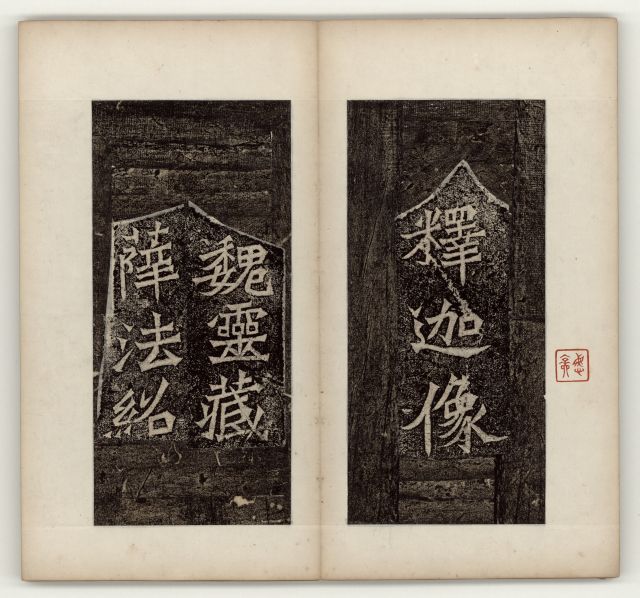 釋迦像
魏靈藏
薛法紹